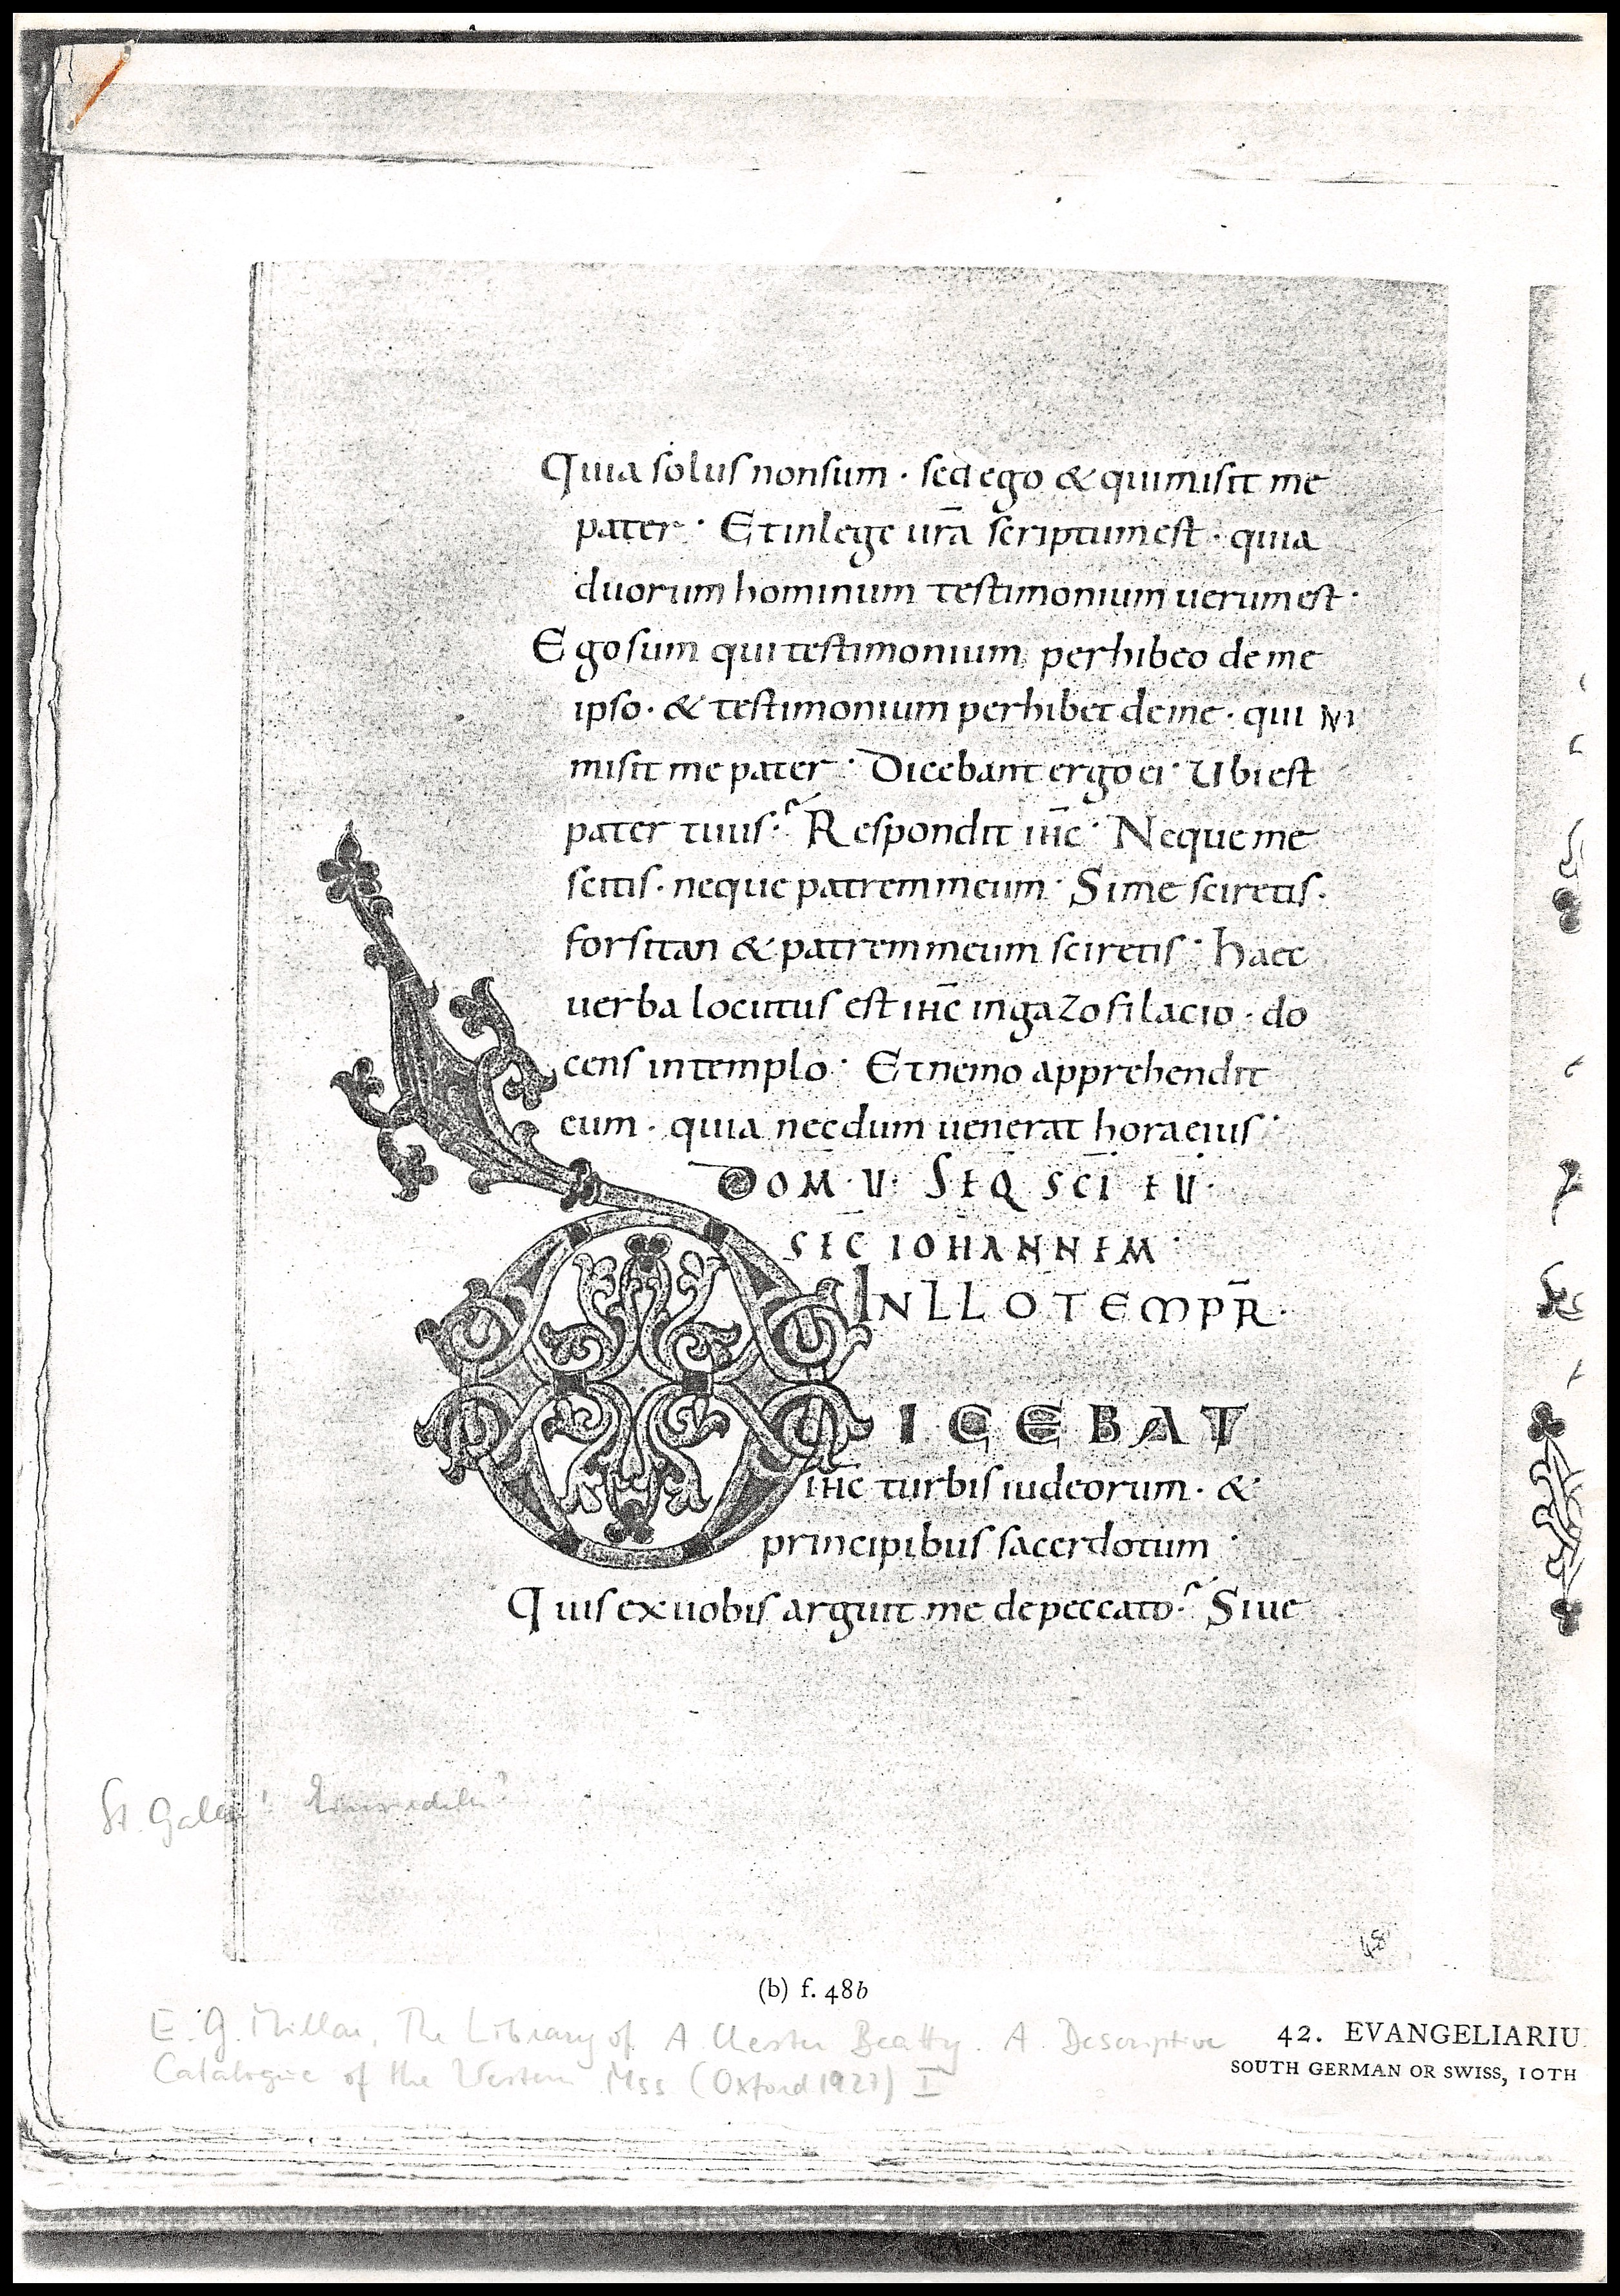 Quia solus non sum · sed ego & qui misit me
pater · Et in lege ur̄a scriptum est · quia
duorum hominum testimonium uerum est ·
Ego sum qui testimonium perhibeo de me
ipso · & testimonium perhibet de me · qui
misit me pater · Dicebant ergo ei · Ubi est
pater tuus · Respondit ih̄c · Neque me
scitis · neque patrem meum · Si me sciretis ·
forsitan & patrem meum sciretis · haec
uerba locutus est ih̄c in gazofilacio · do
cens in templo · Et nemo apprehendit
eum · quia necdum uenerat hora eius ·
DOM · V · SEQ SC̄I EV ·
SEC IOHANNEM ·
IN LLO TEMPR̄ ·
DICEBAT
ih̄c turbis iudeorum · &
principibus sacerdotum ·
Quis ex uobis arguit me de peccato · Siue
St. Gallen? Einsiedeln?
48
(b) f. 48b
E. G. Millar, The Library of A. Chester Beatty. A Descriptive
Catalogue of the Western Mss (Oxford 1927) I
42. EVANGELIARIU
SOUTH GERMAN OR SWISS, 10TH